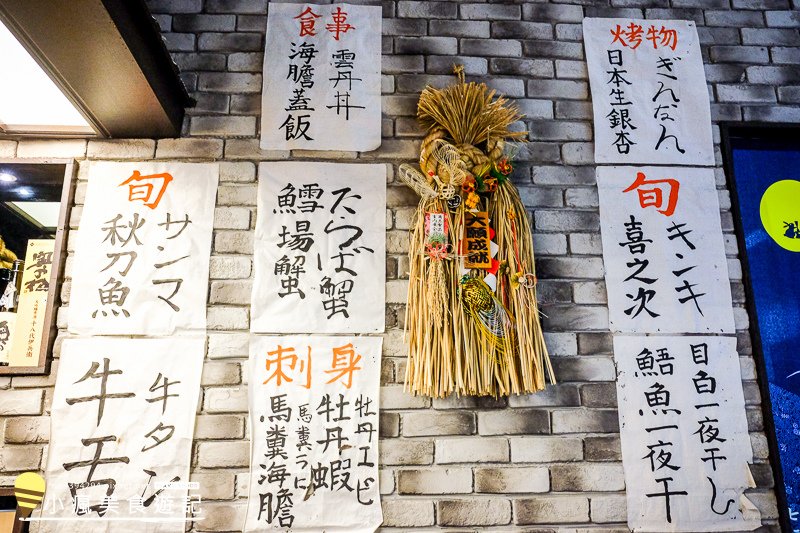 食事
雲丹丼
海膽蓋飯
烤物
ぎんなん
日本生銀杏
旬
サンマ
秋刀魚
たらば蟹
鱈場蟹
旬
キンキ
喜之次
牛タン
牛舌
刺身
牡丹エビ
牡丹蝦
馬糞うに
馬糞海膽
目白一夜干し
鯃魚一夜干
大願成就
小瘋美食遊記